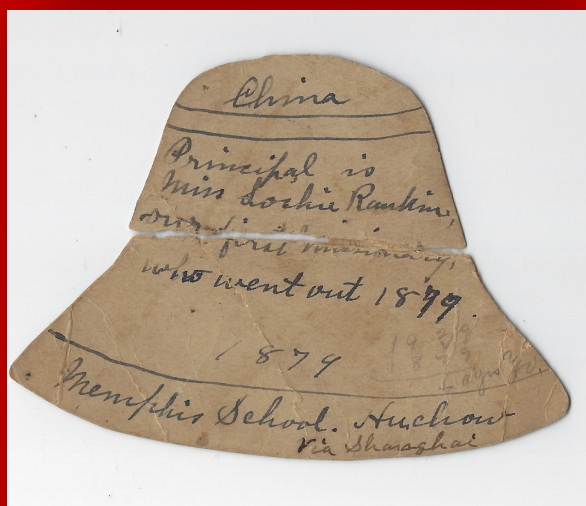 China
Principal is
Miss Lochie Rankin,
our first missionary,
who went out 1879.
1879
1939
1879
Memphis School. Huchow
via Shanaghai